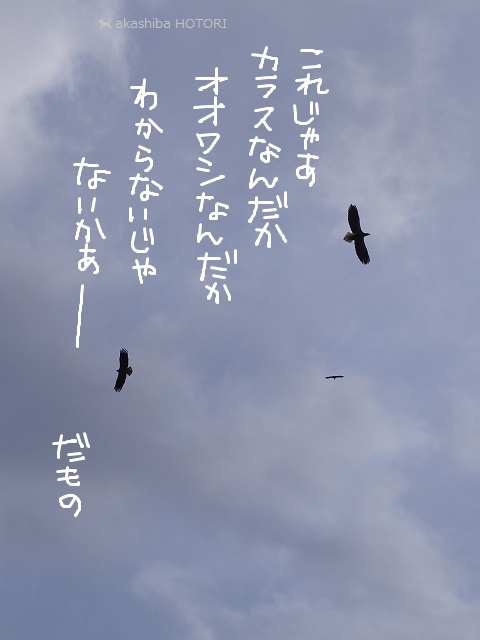 akashiba HOTORI
これじゃあ
カラスなんだか
オオワシなんだか
わからないじゃ
ないかぁー
だもの